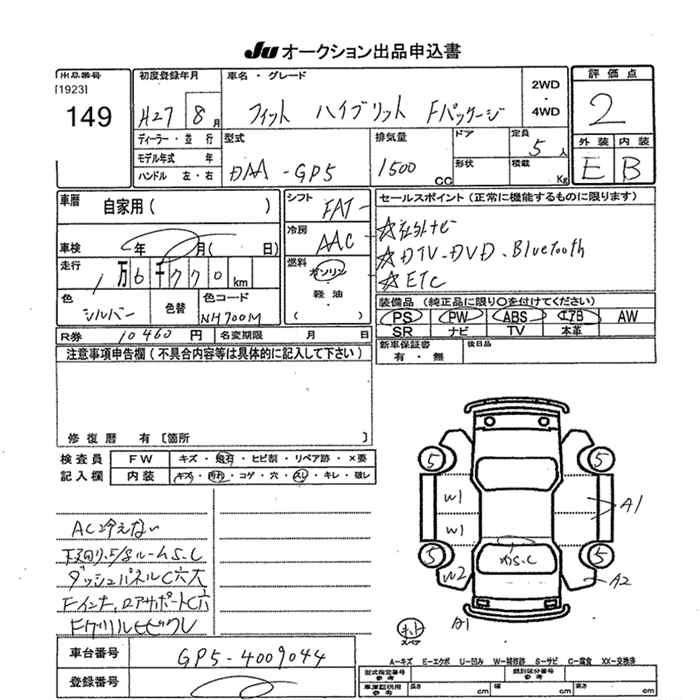 JU オークション出品申込書
出品番号
[1923]
149
初度登録年月
H27 8月
車名・グレード
フィット ハイブリット Fパッケージ
2WD
・
4WD
評価点
2
外装 内装
E B
ディーラー・並行
モデル年式 年
ハンドル 左・右
型式
DAA-GP5
排気量
1500
CC
ドア
形状
定員
5人
積載
Kg
車歴 自家用( )
車検 年 月( 日)
走行
1万6千770km
色
シルバー
色替
色コード
NH700M
シフト
FAT
冷房
AAC
燃料
ガソリン
・
軽油
・
( )
セールスポイント(正常に機能するものに限ります)
☆社外ナビ
☆DTV-DVD、Bluetooth
☆ETC
装備品(純正品に限り〇を付けてください)
PS PW ABS エアB AW
SR ナビ TV 本革
新車保証書
有・無
後日品
R券 10460円 名変期限 月 日
注意事項申告欄(不具合内容等は具体的に記入して下さい)
修復歴 有〔箇所 〕
検査員
記入欄
FW キズ・飛石・ヒビ割・リペア跡・×要
内装 キズ・汚れ・コゲ・穴・スレ・キレ・破レ
AC冷えない
ダッシュパネルC穴大
Fインナ、ロアサポートC穴
Fグリルヒビワレ
車台番号
GP5-4009044
登録番号
5 5
W1
W1
A1
5 5
W2
A2
A1
A-キズ E-エクボ U-凹み W-補修跡 S-サビ C-腐食 XX-交換済
型式指定番号
参考
類別区分番号
参考
車庫証明用
参考
長さ cm 幅 cm 高さ cm